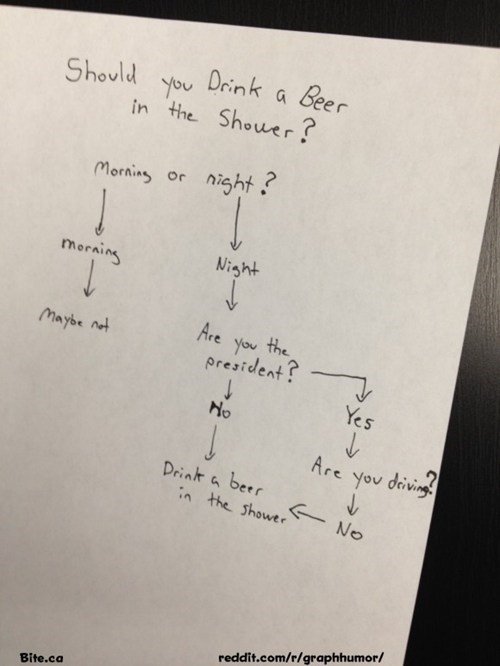 Should you Drink a Beer
in the Shower?
Morning or night?
morning
Night
Maybe not
Are you the
president?
No
Yes
Are you driving?
Drink a beer
in the shower
No
Bite.ca
reddit.com/r/graphhumor/